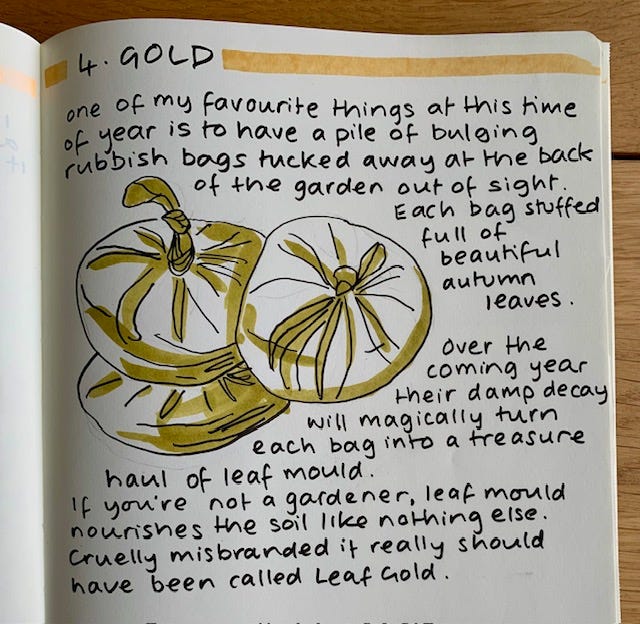 4. GOLD
one of my favourite things at this time
of year is to have a pile of bulging
rubbish bags tucked away at the back
of the garden out of sight.
Each bag stuffed
full of
beautiful
autumn
leaves.
Over the
coming year
their damp decay
will magically turn
each bag into a treasure
haul of leaf mould.
If you're not a gardener, leaf mould
nourishes the soil like nothing else.
Cruelly misbranded it really should
have been called Leaf Gold.